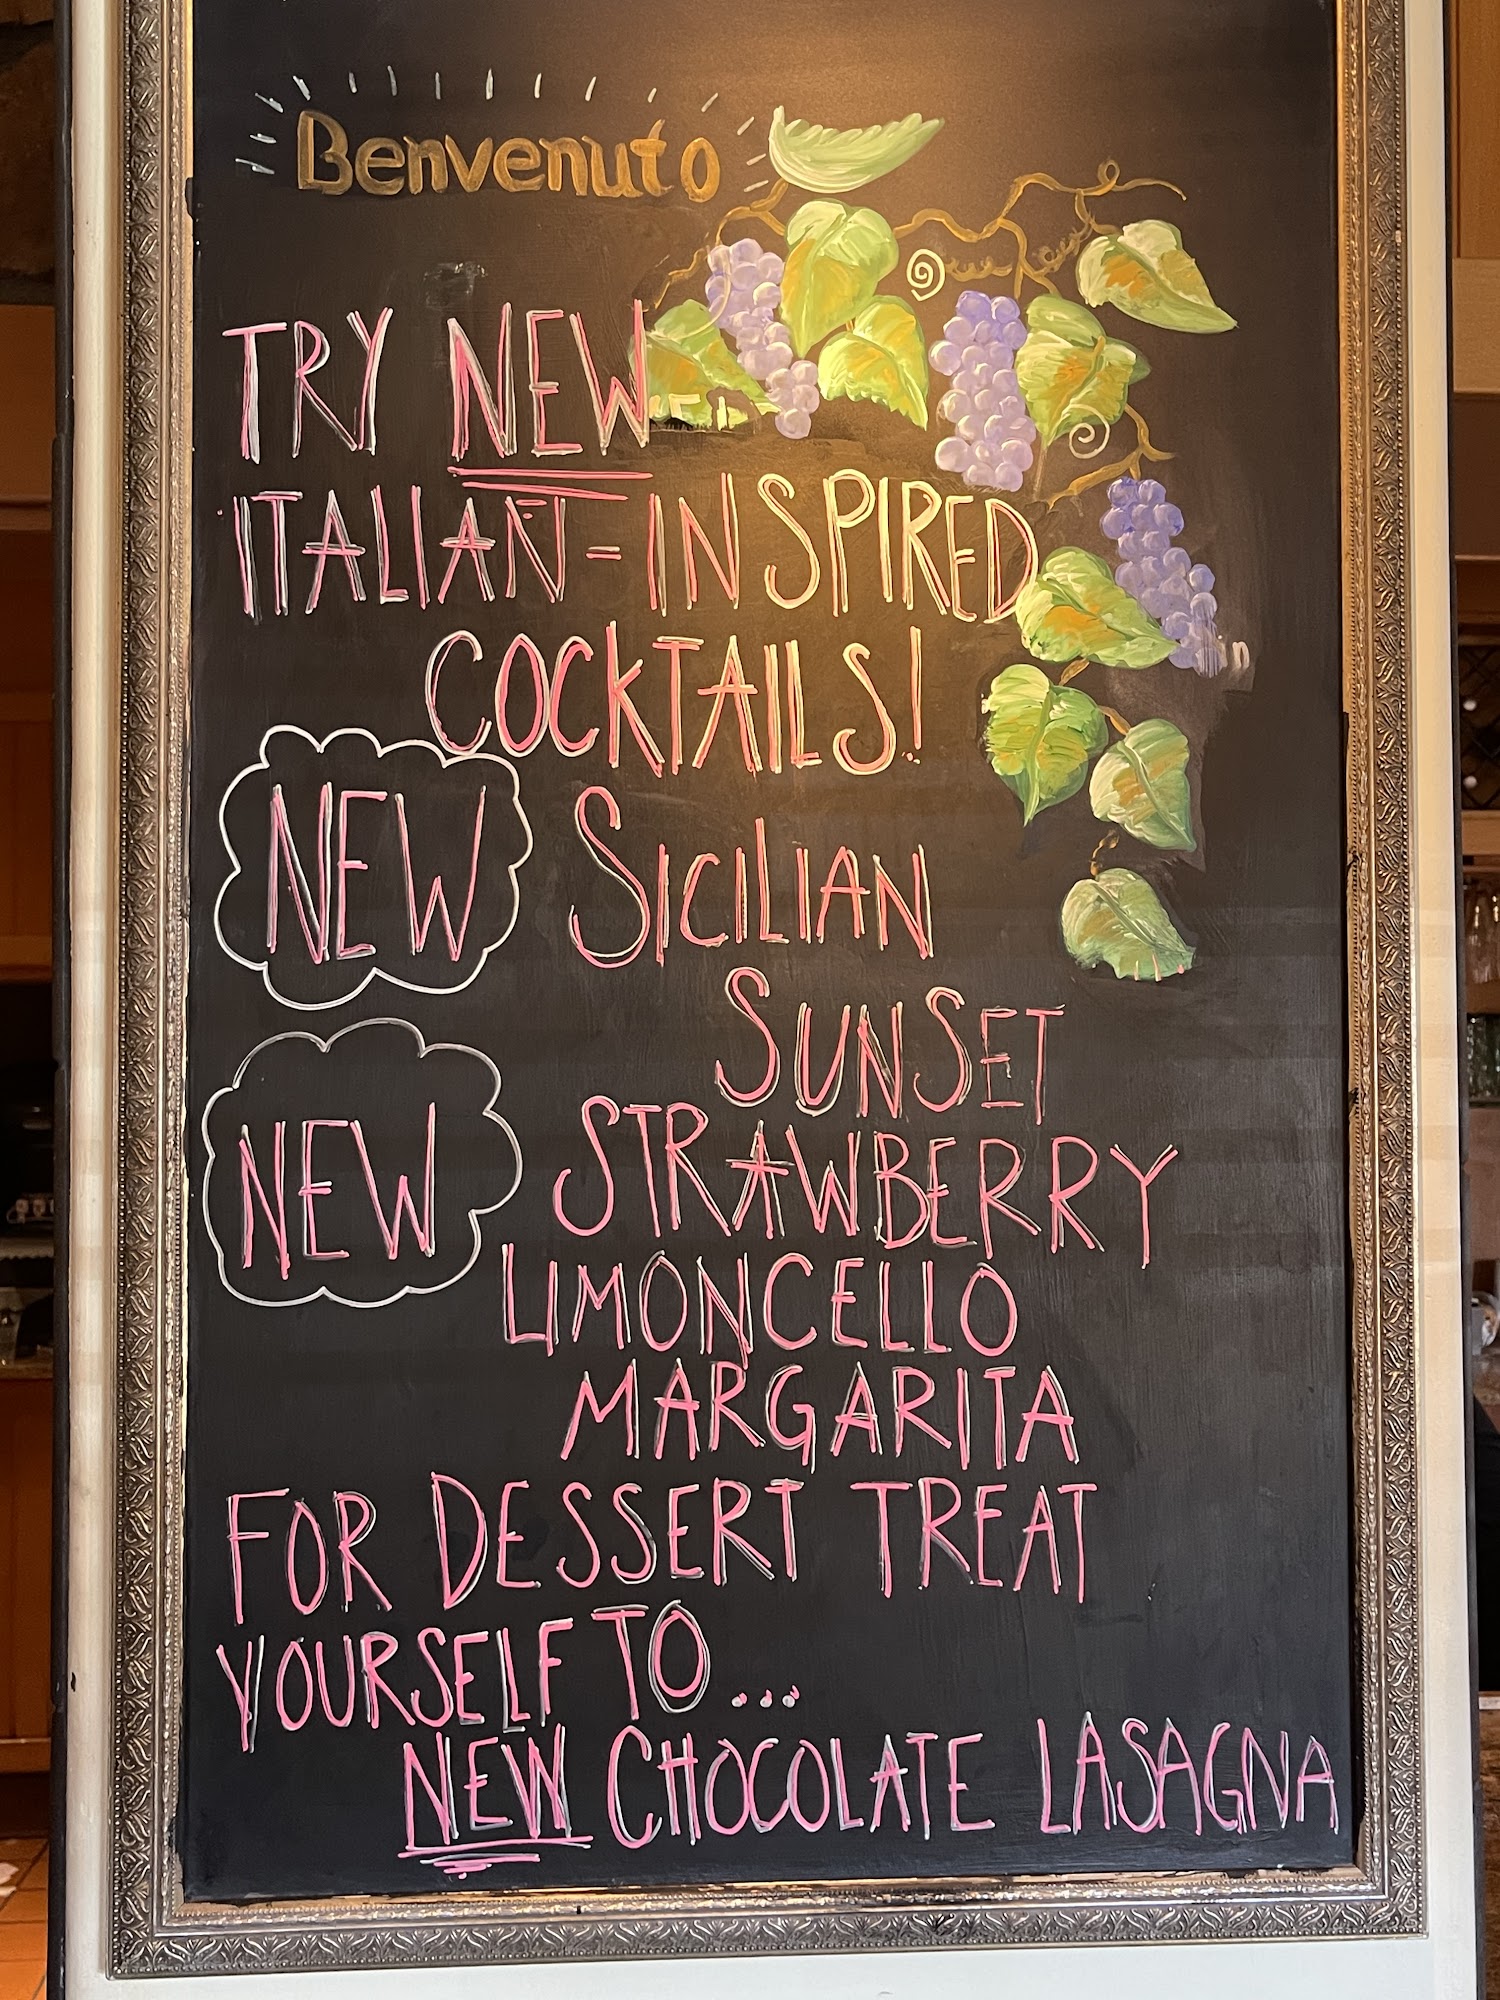 Benvenuto
TRY NEW
ITALIAN-INSPIRED
COCKTAILS!
NEW SICILIAN
SUNSET
NEW STRAWBERRY
LIMONCELLO
MARGARITA
FOR DESSERT TREAT
YOURSELF TO...
NEW CHOCOLATE LASAGNA